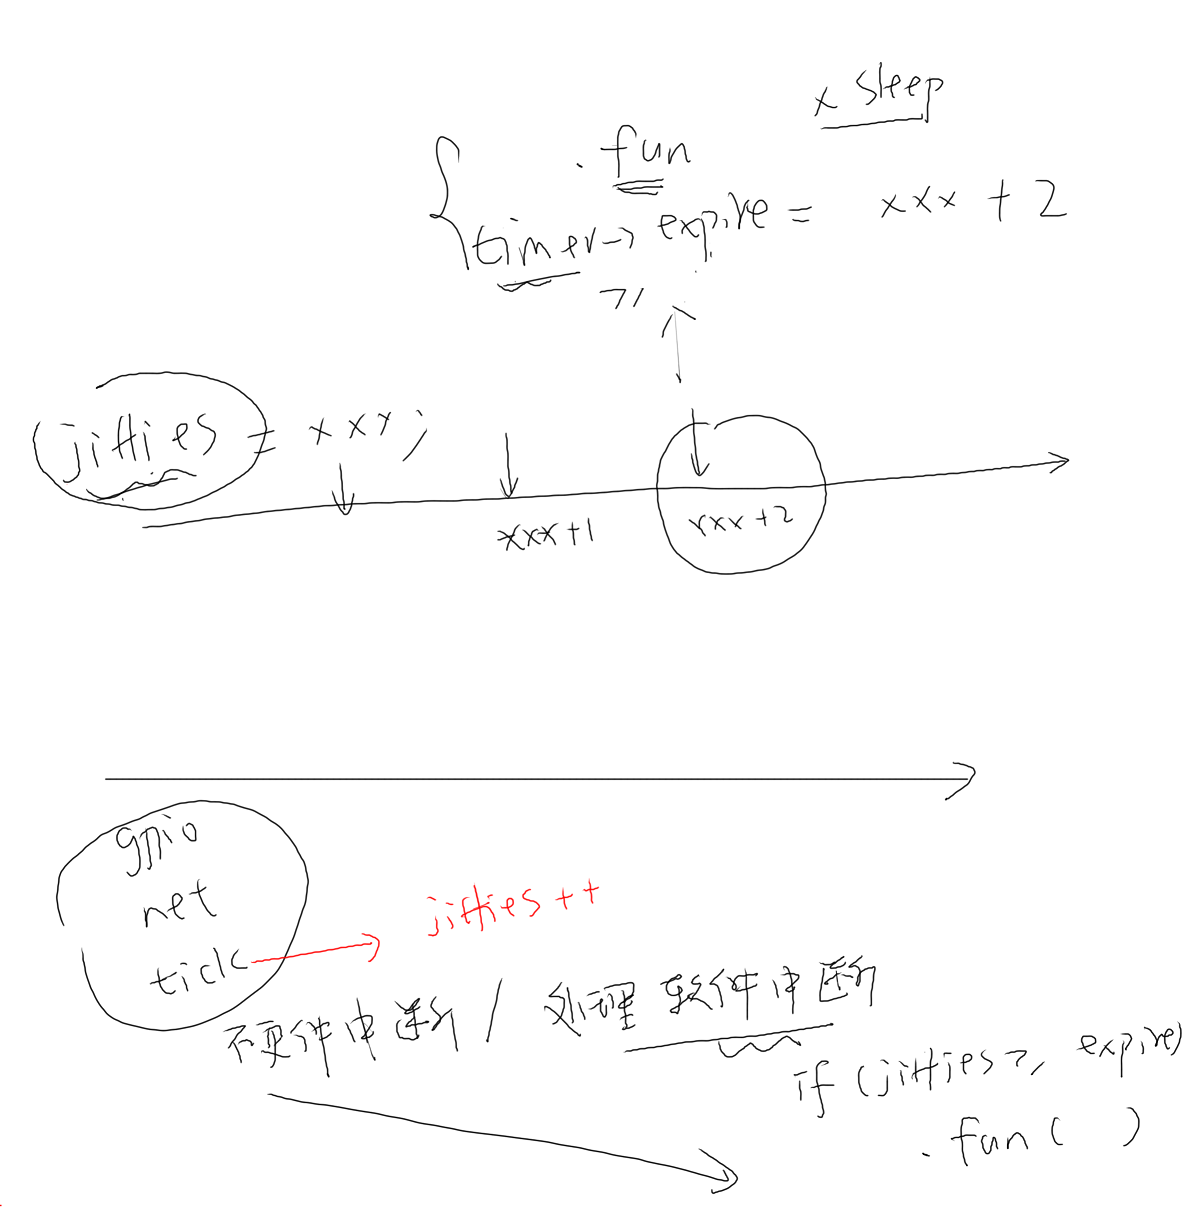 x sleep
.fun
timer-> expire = xxx + 2
>/
jiffies = xxx;
xxx+1
xxx+2
gpio
net
tick
jiffies ++
硬件中断 / 处理软件中断
if (jiffies >, expire)
.fun( )